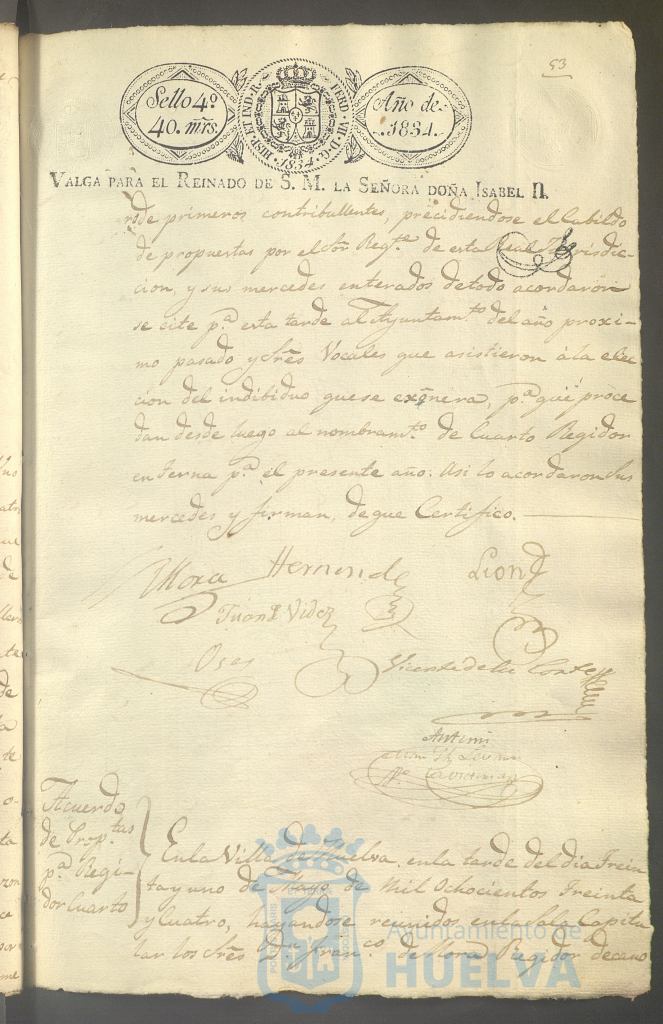 53
Sello 4º
40. mrs.
HISP. ET IND. R. FERD. VII. D. G.
1834.
Año de
1834.
VALGA PARA EL REINADO DE S. M. LA SEÑORA DOÑA ISABEL II.
de primeros contribullentes, precidiendose el Cabildo
de propuestas por el Sor. Regte. de esta Real Jurisdic-
cion, y sus mercedes enterados de todo acordaron
se cite pª. esta tarde al Ayuntamto. del año proxi-
mo pasado y Sres Vocales que asistieron á la elec
cion del individuo que se exônera, pª. que proce
dan desde luego al nombramto. de Cuarto Regidor
en terna pª. el presente año. Asi lo acordaron sus
mercedes y firman, de que Certifico.
Mora Hernend Leon
Juan Videz
Oses Vicente de la Corte
Antemi
Acuerdo
de Proptas
pª. Regi-
dor Cuarto
En la Villa de Huelva, en la tarde del dia Trein
ta y uno de Mayo de Mil Ochocientos Treinta
y Cuatro, hayandose reunidos en la Sala Capitu
lar los Sres Dn. Franco. de Mora Regidor decano
Ayuntamiento de
HUELVA